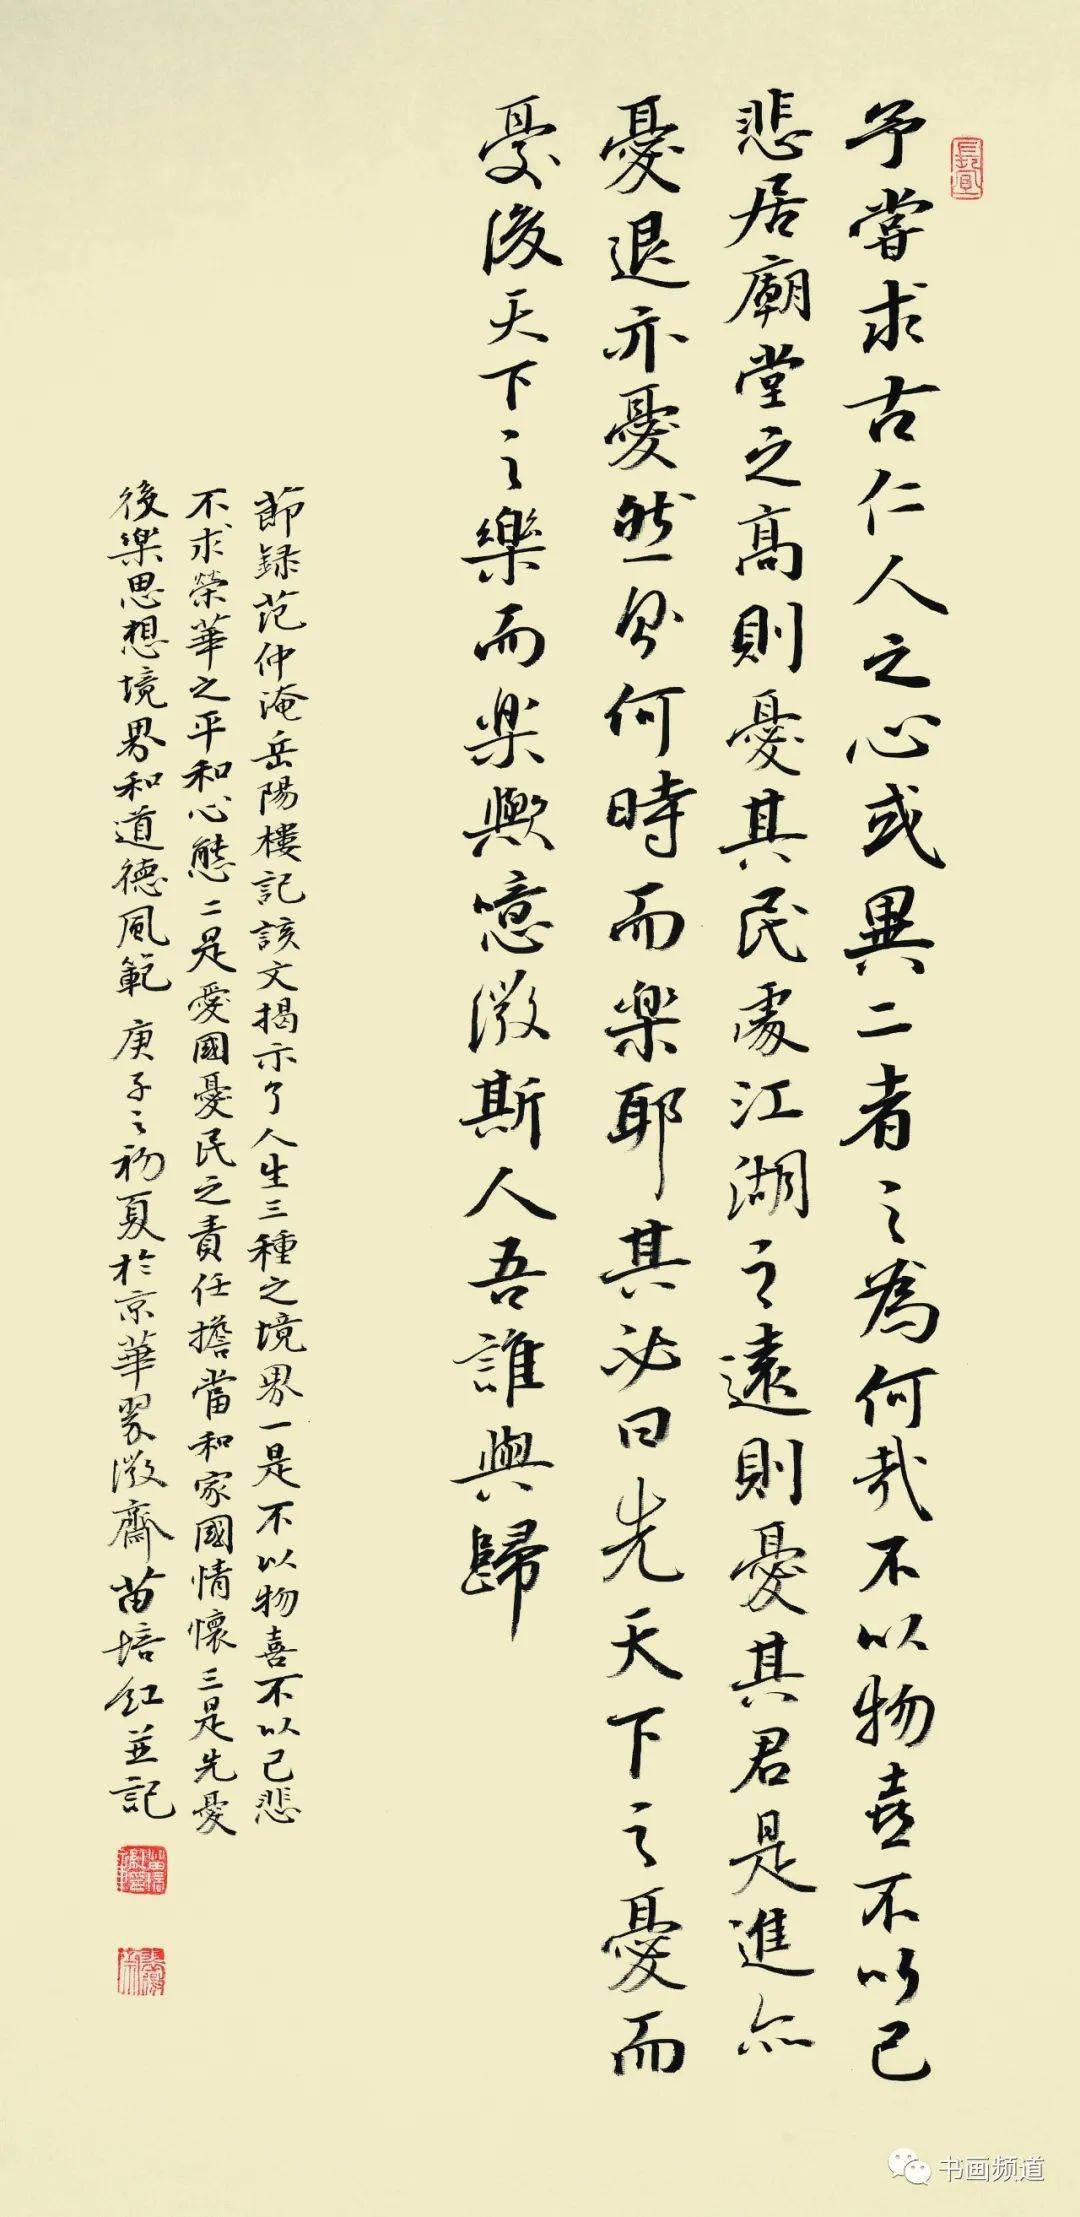 予嘗求古仁人之心或異二者之為何哉不以物喜不以己
悲居廟堂之高則憂其民處江湖之遠則憂其君是進亦
憂退亦憂然則何時而楽耶其必曰先天下之憂而
憂後天下之樂而楽歟噫微斯人吾誰與歸
節録范仲淹岳陽樓記該文揭示了人生三種之境界一是不以物喜不以己悲
不求榮華之平和心態二是愛國憂民之責任擔當和家國情懷三是先憂
後樂思想境界和道德風範 庚子之初夏於京華翠微齋苗培紅並記
书画频道